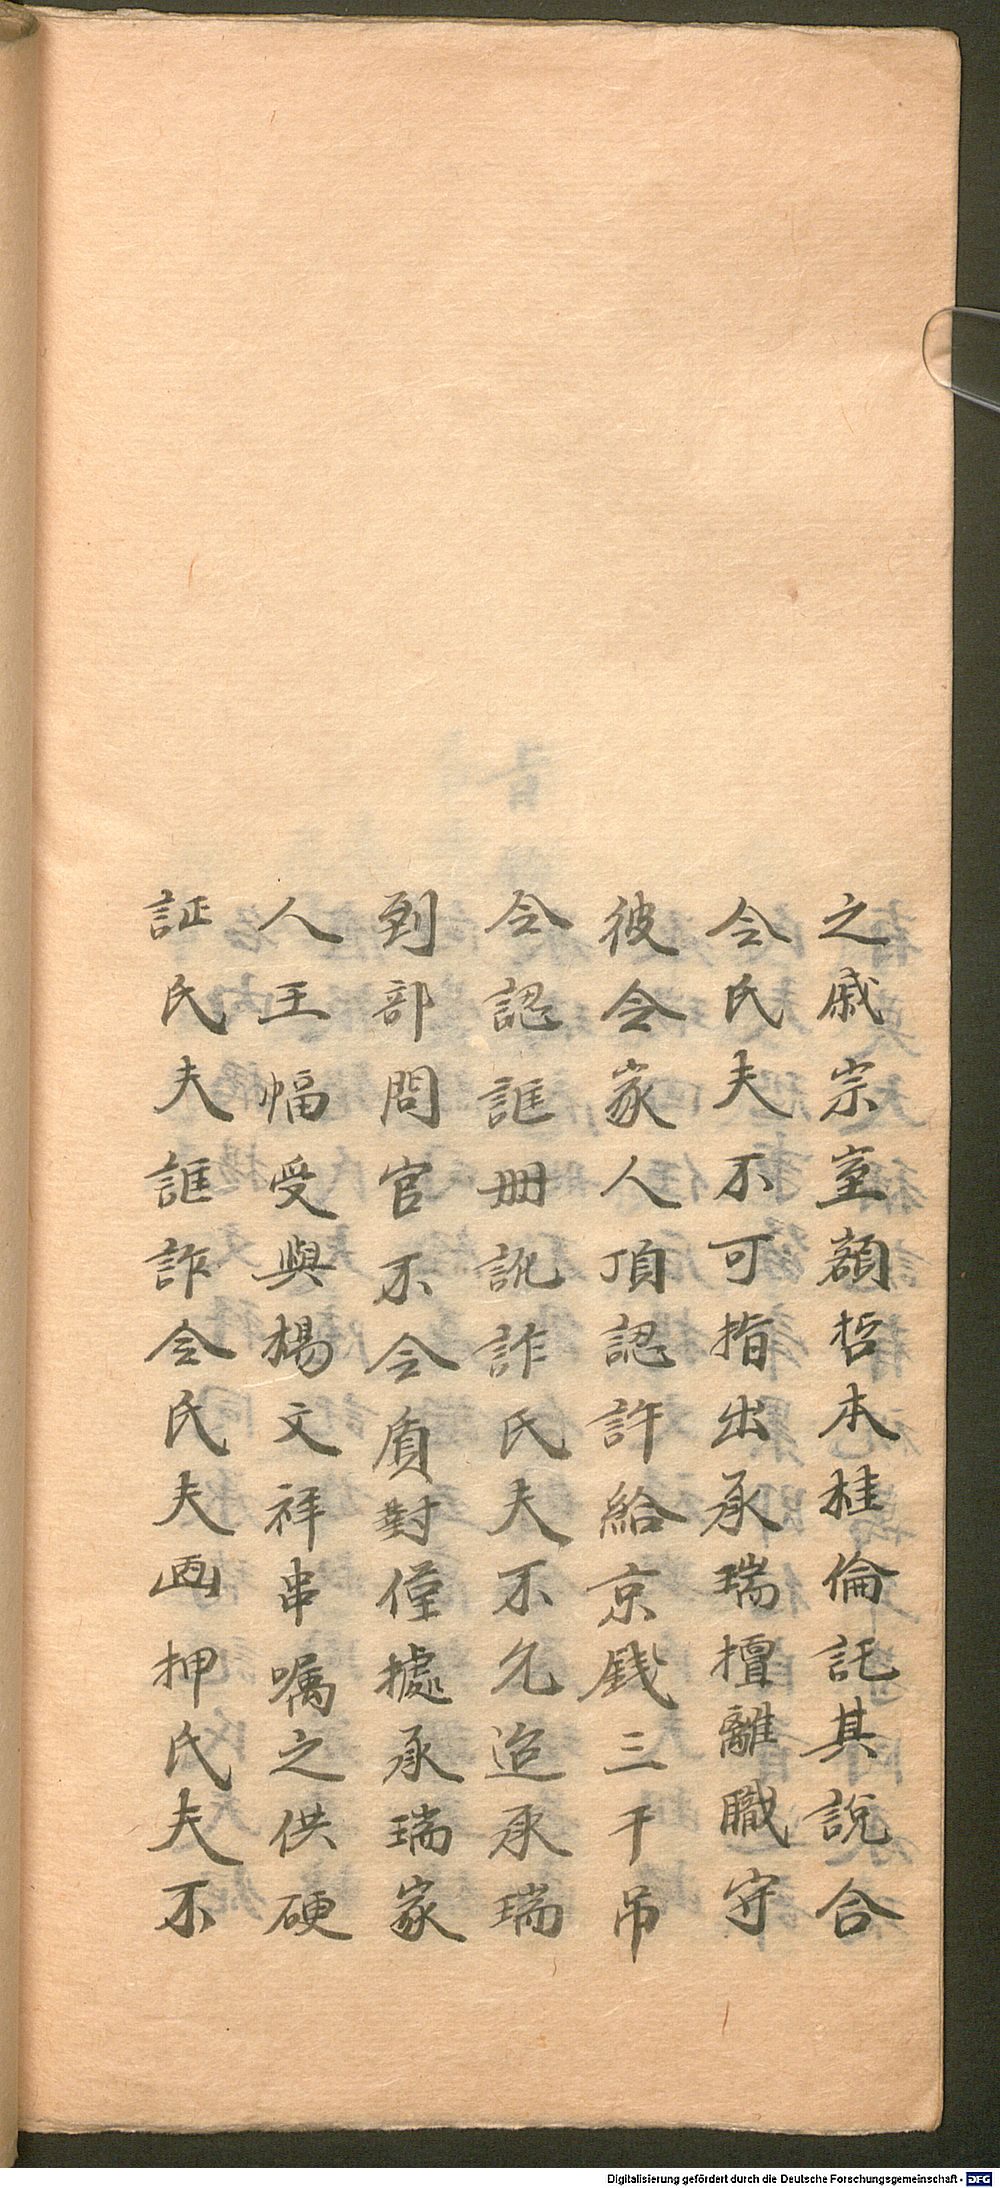 之戚宗室額哲本桂倫託其說合
令氏夫不可指出承瑞擅離職守
彼令家人頂認許給京錢三千吊
令認誆冊訛詐氏夫不允迨承瑞
到部問官不令質對僅據承瑞家
人王幅受與楊文祥串嘱之供硬
証氏夫誆詐令氏夫画押氏夫不
Digitalisierung gefördert durch die Deutsche Forschungsgemeinschaft - DFG